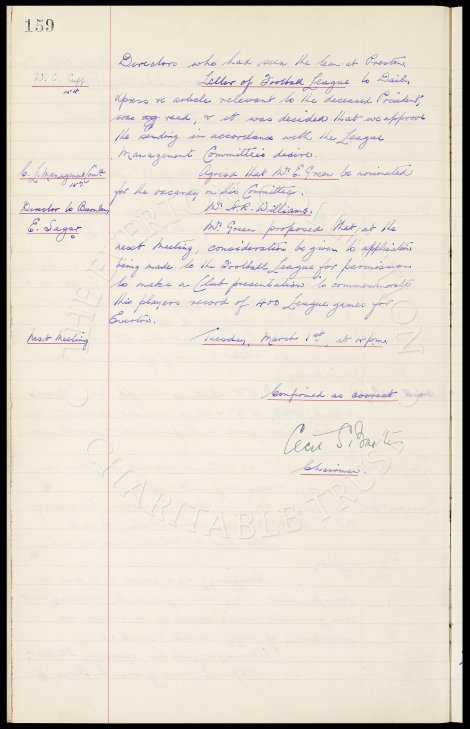 159
Directors who had seen the team at Preston.
W. C. Cuff
Letter of Football League to Daily
Xpress re article relevant to the deceased President,
was read, & it was decided that we approve
the sending in accordance with the League
Management Committee's desire.
C. L. Management Comtt
Agreed that Mr E. Green be nominated
for the vacancy on this Committee.
Director to Burnley
Mr. N. R. Williams.
E. Sagar
Mr. Green proposed that at the
next meeting, consideration be given to application
being made to the Football League for permission
to make a Club presentation to commemorate
this players record of 400 League games for
Everton.
Next Meeting
Tuesday, March 1st, at
Confirmed as correct
Cecil S. Baxter
Chairman.
THE EVERTON COLLECTION
CHARITABLE TRUST